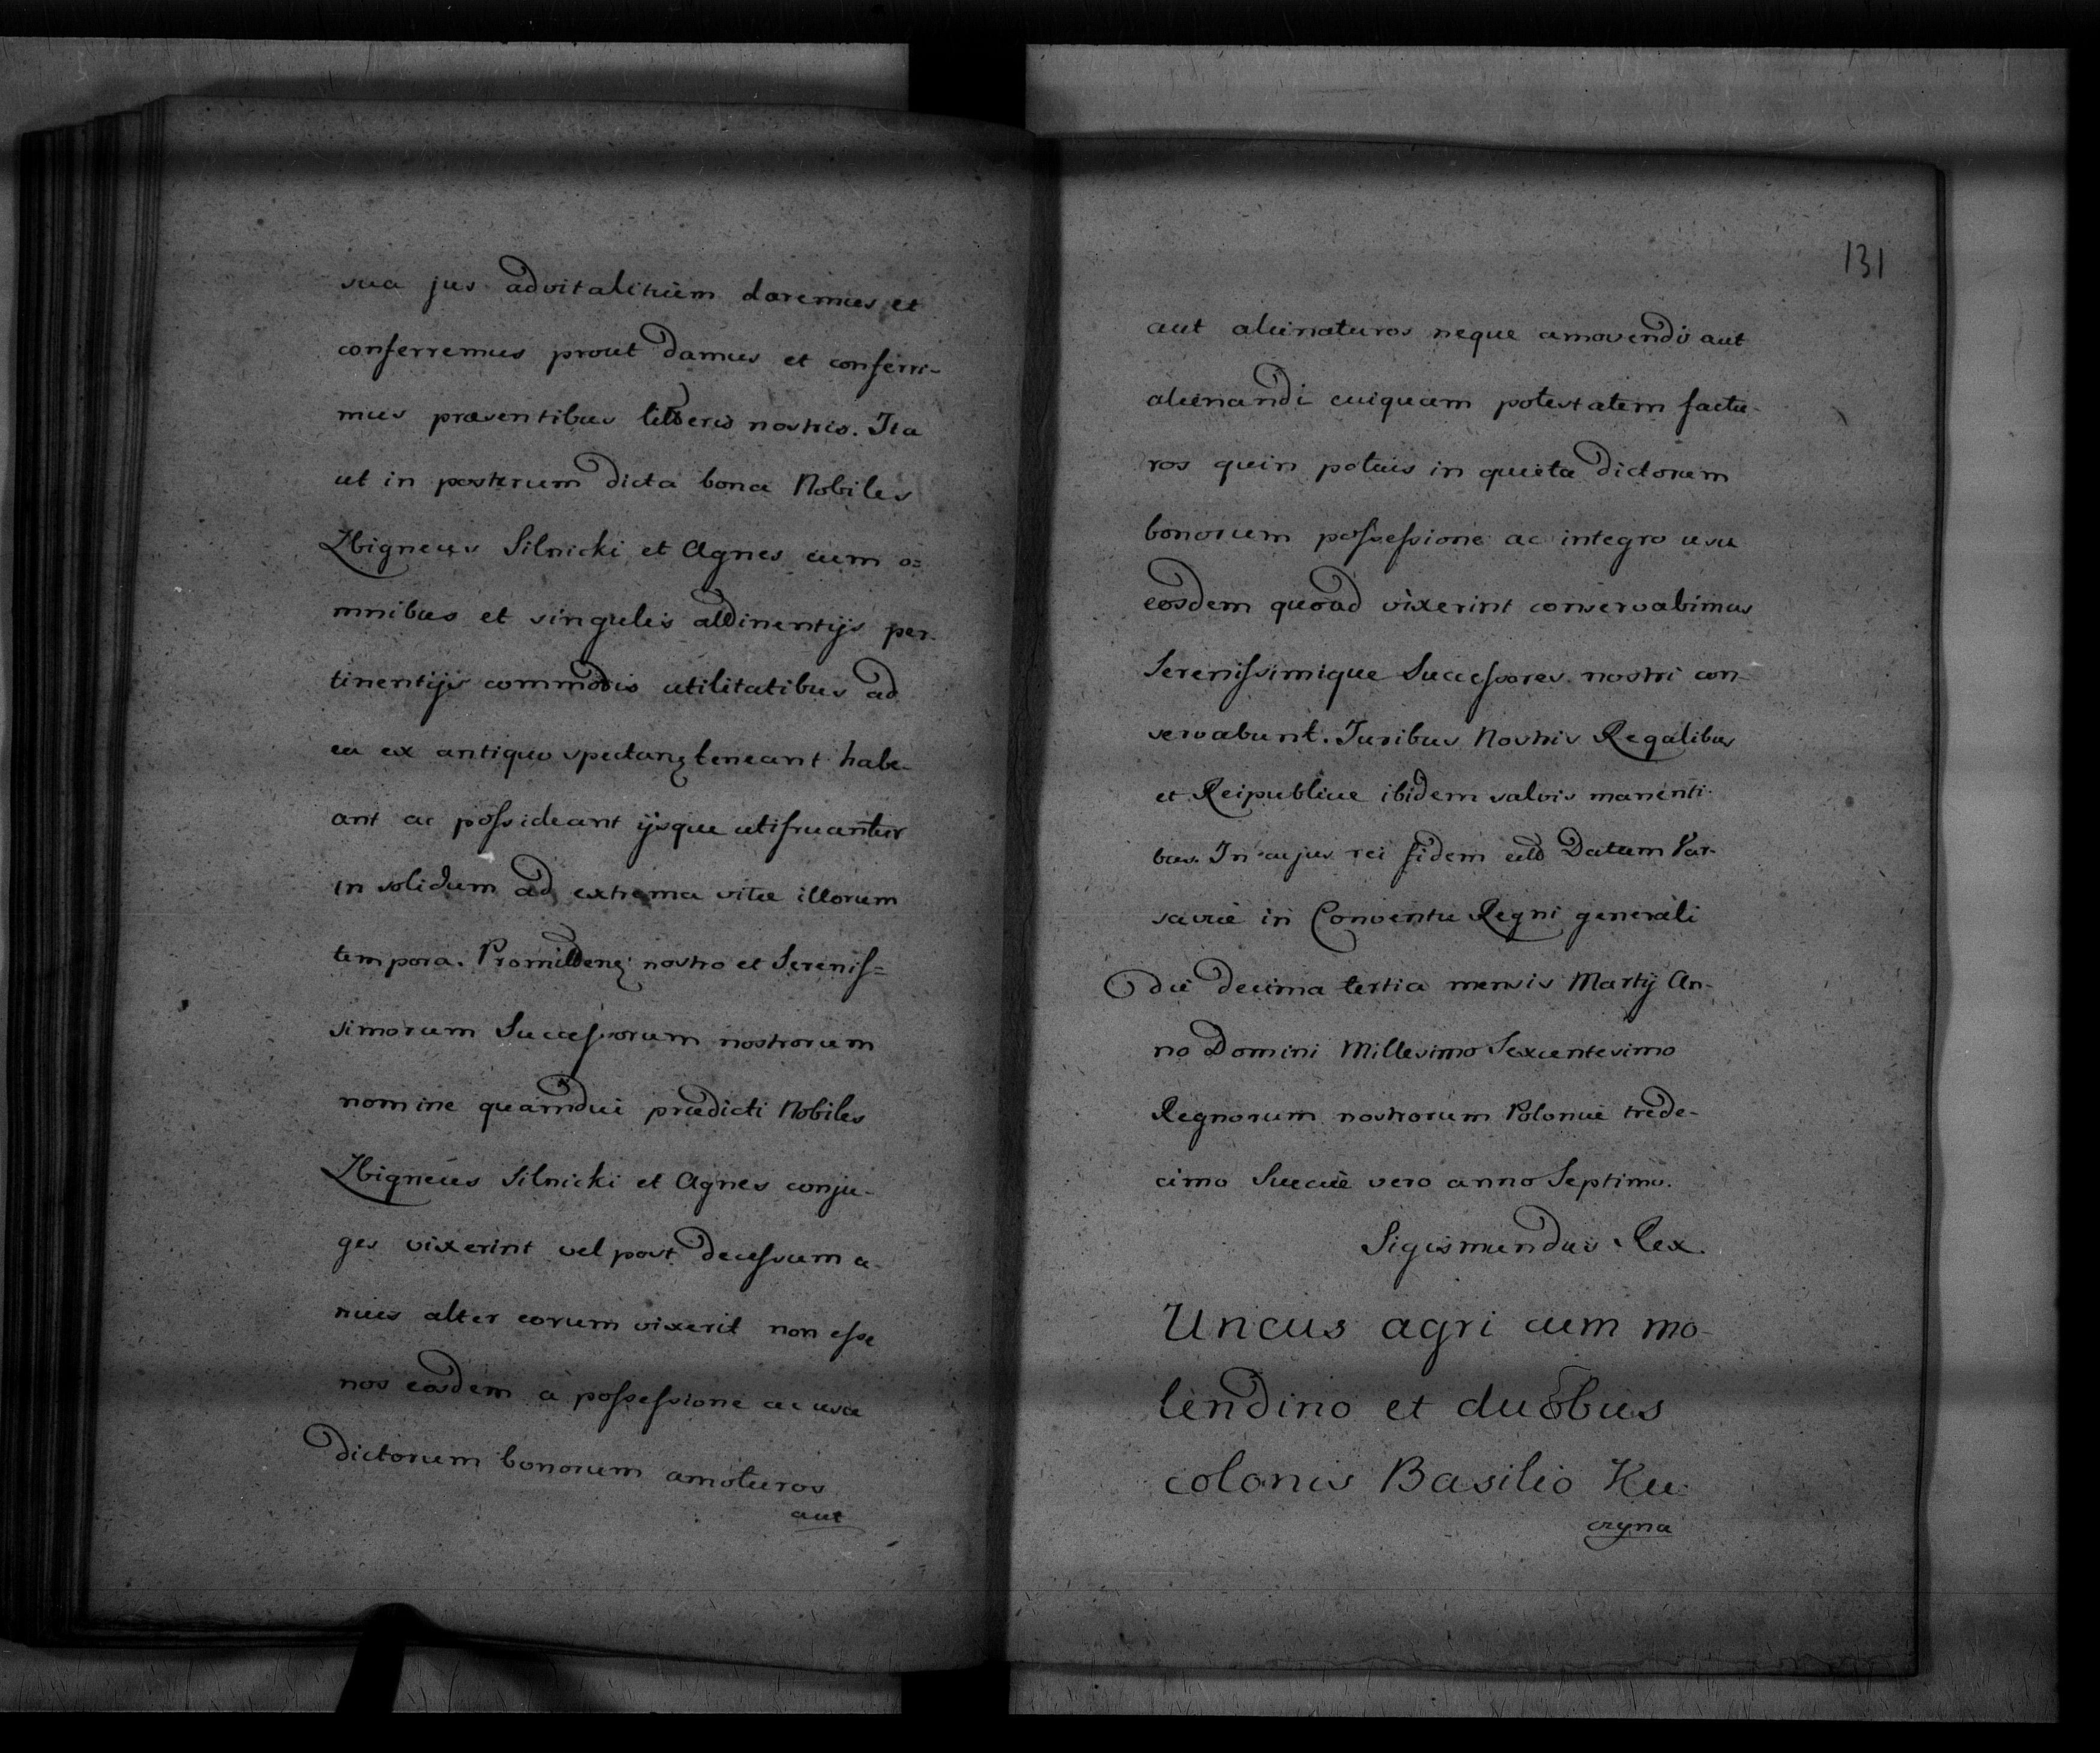 sua jus advitalitium daremus et
conferremus prout damus et conferri-
mus præsentibus litteris nostris. Ita
ut in posterum dicta bona Nobiles
Zbigneus Silnicki et Agnes cum o=
mnibus et singulis attinentijs per-
tinentijs commodis utilitatibus ad
ea ex antiquo spectanȝ teneant habe-
ant ac possideant ijsque utifruantur
in solidum ad extrema vitæ illorum
tempora. Promittenȝ nostro et Serenis=
simorum Successorum nostrorum
nomine quamdui prædicti Nobiles
Zbigneus Silnicki et Agnes conju-
ges vixerint vel post decessum u-
nius alter eorum vixerit non esse
nos eosdem à possessione ac usu
dictorum bonorum amoturos
aut
131
aut alienaturos neque amovendi aut
alienandi cuiquam potestatem factu-
ros quin potius in quieta dictorum
bonorum possessione ac integro usu
eosdem quoad vixerint conservabimus
Serenissimique Successores nostri con-
servabunt. Juribus Nostris Regalibus
et Reipublicæ ibidem salvis manenti-
bus. In cujus rei fidem ett Datum Var-
saviæ in Conventu Regni generali
die decima tertia mensis Martij An-
no Domini Millesimo Sexcentesimo
Regnorum nostrorum Poloniæ trede-
cimo Sueciæ vero anno Septimo.
Sigismundus Rex.
Uncus agri cum mo-
lendino et duobus
colonis Basilio Ku-
czyna